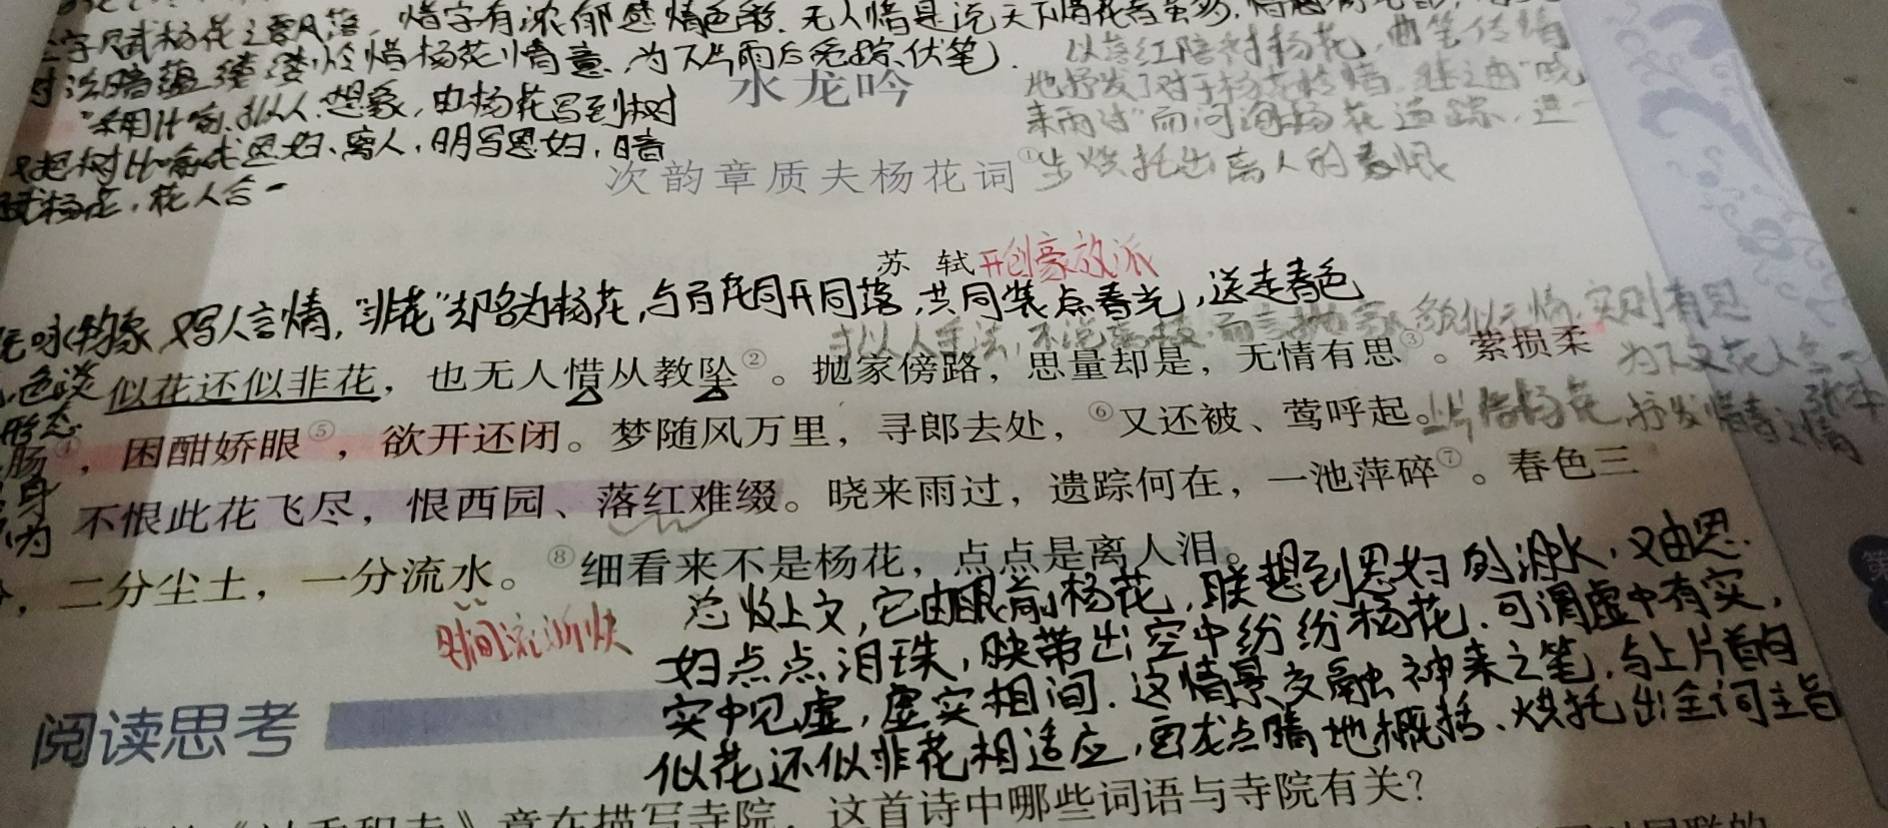 惜字有浓郁感情色彩.无人惜是说天下惜花者虽多,
怜惜杨花情意,为下片雨后觅踪伏笔.
以落红陪衬杨花,曲笔传情
水龙吟
地抒发了对于杨花的怜惜.继之由"晓
采用比喻.拟人.想象,由杨花写到柳树
来雨过"而问询杨花遗踪,进一
把树比喻成思妇、离人,明写思妇,暗
次韵章质夫杨花词①
步烘托出离人的春恨
赋杨花,花人合一
苏 轼
开创豪放派
咏物象又写人言情,"非花"却名为杨花,与百花同开同落,共同装点春光,送走春色
拟人手法,不说离枝而言抛家,貌似无情,实则有思
色淡
似花还似非花,也无人惜从教坠②。抛家傍路,思量却是,无情有思③。萦损柔
为下文花人合一
形态
肠④,困酣娇眼⑤,欲开还闭。梦随风万里,寻郎去处,⑥又还被、莺呼起。
上片惜杨花,抒发惜春之情
不恨此花飞尽,恨西园、落红难缀。晓来雨过,遗踪何在,一池萍碎⑦。春色三
,二分尘土,一分流水。⑧细看来不是杨花,点点是离人泪。
时间流逝快
总收上文,它由眼前杨花,联想到思妇的泪水,又由思
妇点点泪珠,映带出空中纷纷杨花.可谓虚中有实,
实中见虚,虚实相间.这情景交融神来之笔,与上片首句
似花还似非花相适应,画龙点睛地概括、烘托出全词主旨
阅读思考
章在描写寺院,这首诗中哪些词语与寺院有关?